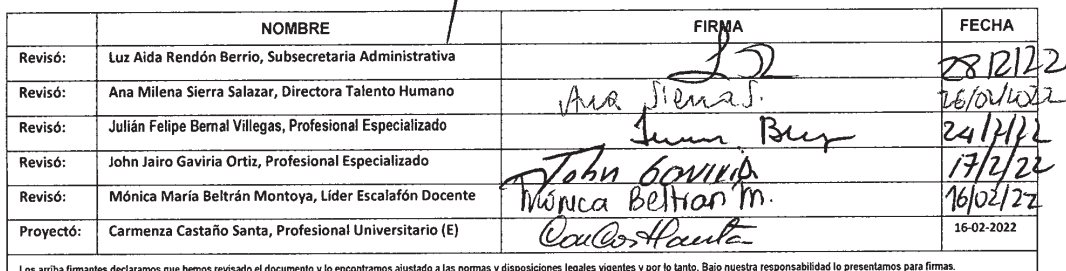 NOMBRE FIRMA FECHA
Revisó: Luz Aida Rendón Berrio, Subsecretaria Administrativa 28/2/22
Revisó: Ana Milena Sierra Salazar, Directora Talento Humano Ana Sierra S. 26/02/2022
Revisó: Julián Felipe Bernal Villegas, Profesional Especializado
Revisó: John Jairo Gaviria Ortiz, Profesional Especializado John Gaviria 17/2/22
Revisó: Mónica María Beltrán Montoya, Líder Escalafón Docente Mónica Beltran M. 16/02/22
Proyectó: Carmenza Castaño Santa, Profesional Universitario (E) 16-02-2022
Los arriba firmantes declaramos que hemos revisado el documento y lo encontramos ajustado a las normas y disposiciones legales vigentes y por lo tanto. Bajo nuestra responsabilidad lo presentamos para firmas.